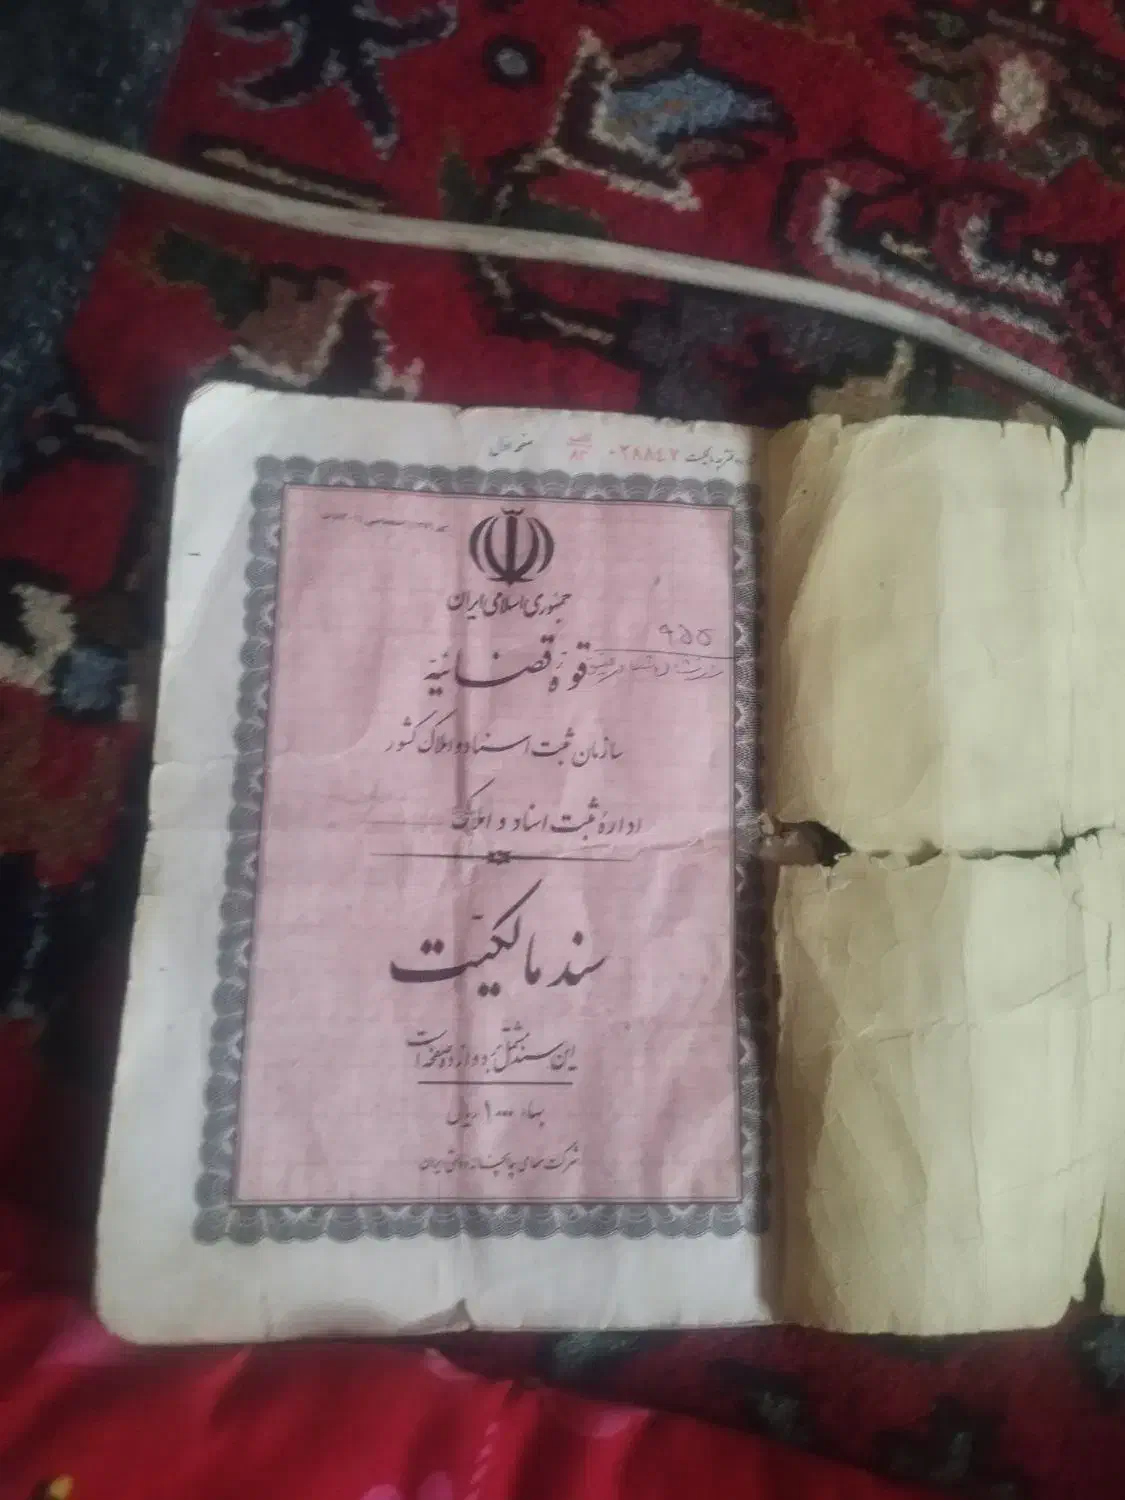 شماره دفترچه مالکیت ۰۲۸۸۴۷ الف/۸۲ صفحه اول
جمهوری اسلامی ایران
۹۵۵
قوه قضائیه
سازمان ثبت اسناد و املاک کشور
اداره ثبت اسناد و املاک
سند مالکیت
این سند مشتمل بر دوازده صفحه است
بهاء ۱۰۰۰ ریال
شرکت سهامی چاپخانه دولتی ایران